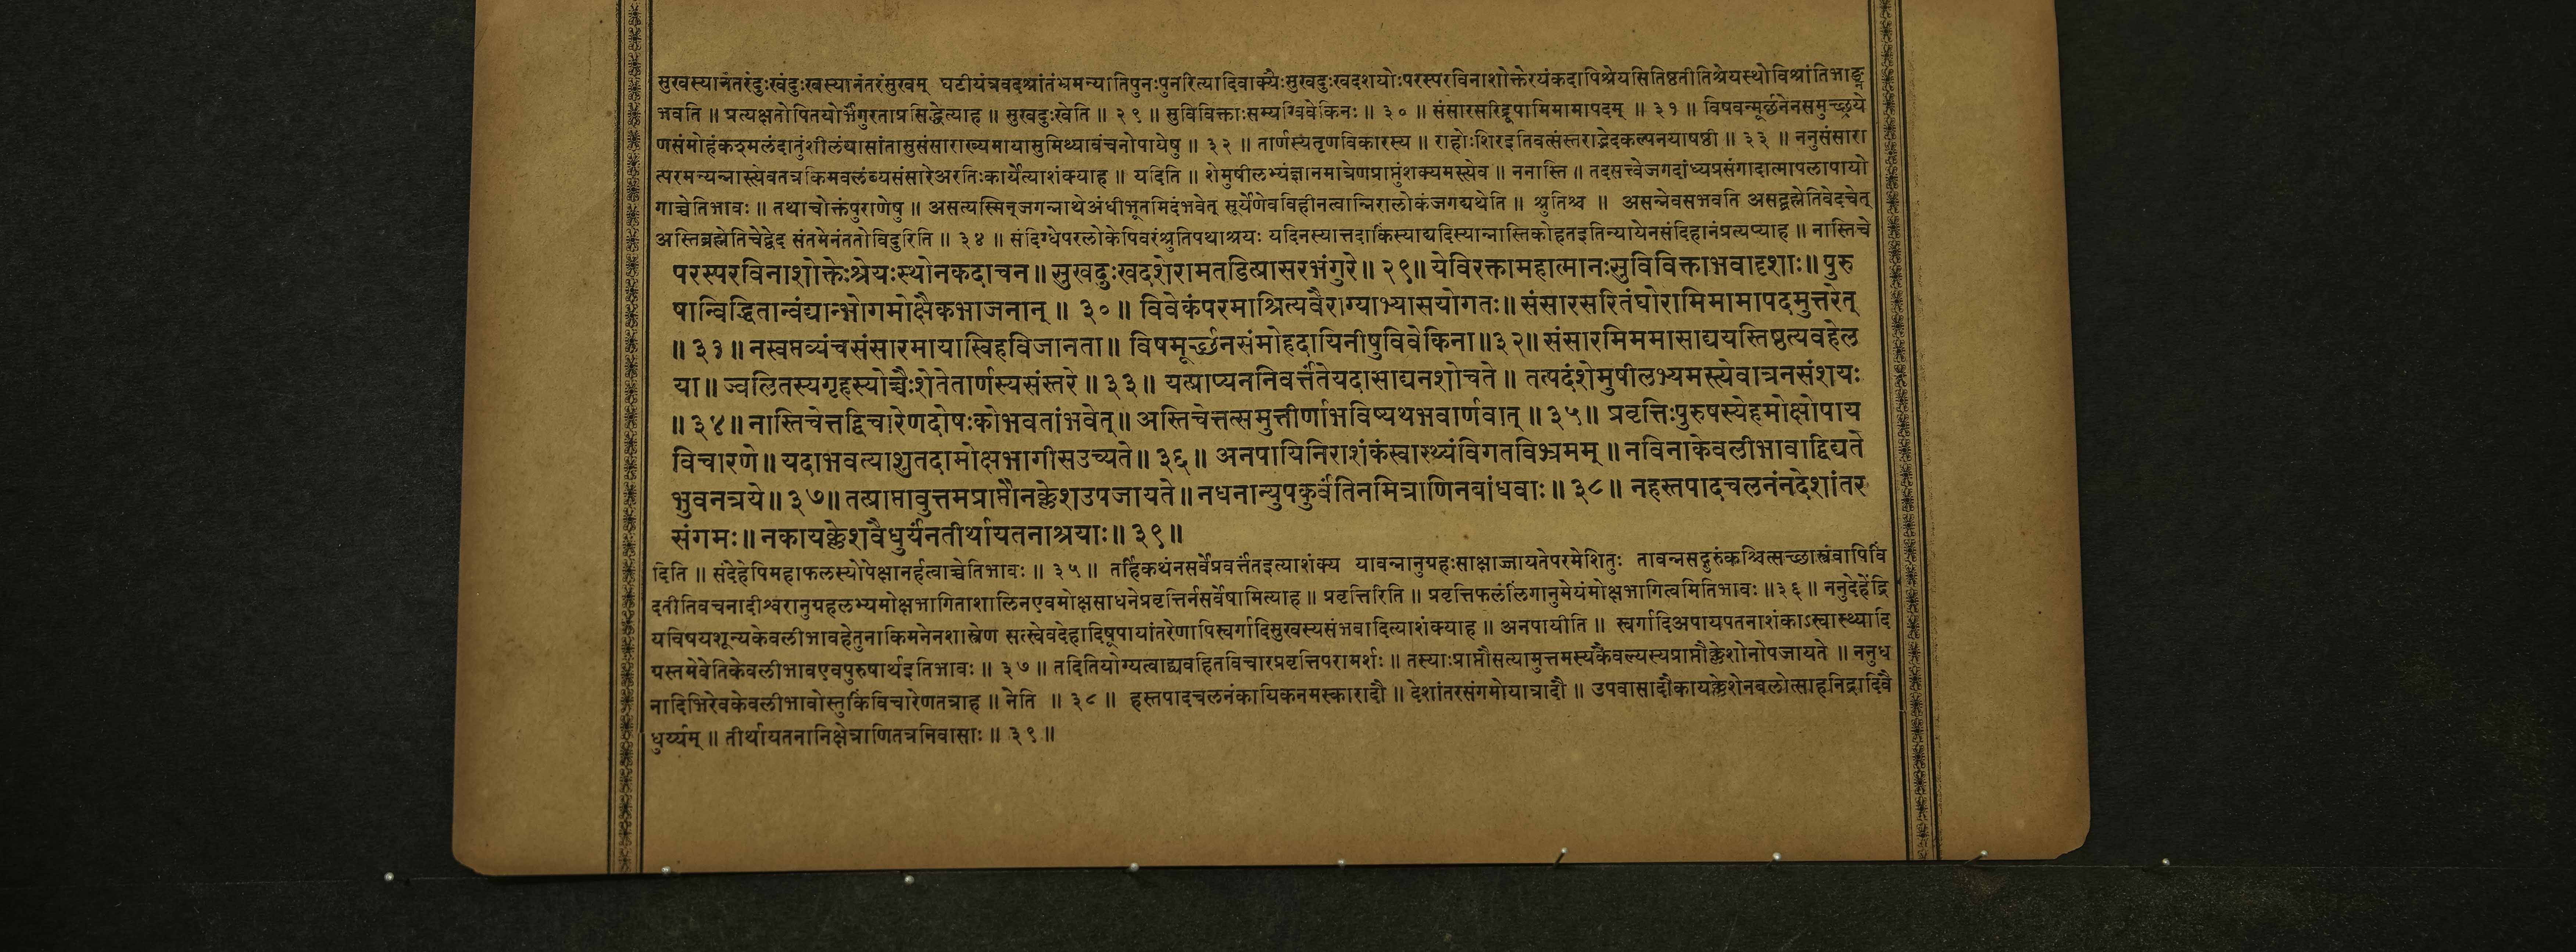 सुखस्यानंतरंदुःखंदुःखस्यानंतरंसुखम् घटीयंत्रवदश्रांतंभ्रमन्यातिपुनःपुनरित्यादिवाक्यैःसुखदुःखदशयोःपरस्परविनाशोक्तेरयंकदापिश्रेयसितिष्ठतीतिश्रेयस्थोविश्रांतिभाङ्न
भवति ॥ प्रत्यक्षतोपितयोर्भंगुरताप्रसिद्धेत्याह ॥ सुखदुःखेति ॥ २९ ॥ सुविविक्ताःसम्यग्विवेकिनः ॥ ३० ॥ संसारसरिद्रूपामिमामापदम् ॥ ३१ ॥ विषवन्मूर्छनेनसमुच्छ्रये
णसंमोहंकश्मलंदातुंशीलंयासांतासुसंसाराख्यमायासुमिथ्यावंचनोपायेषु ॥ ३२ ॥ तार्णस्यतृणविकारस्य ॥ राहोःशिरइतिवत्संस्तराद्भेदकल्पनयाषष्ठी ॥ ३३ ॥ ननुसंसारा
त्परमन्यन्नास्त्येवतत्रकिमवलंब्यसंसारेअरतिःकार्येत्याशंक्याह ॥ यदिति ॥ शेमुषीलभ्यंज्ञानमात्रेणप्राप्तुंशक्यमस्त्येव ॥ ननास्ति ॥ तदसत्त्वेजगदांध्यप्रसंगादात्मापलापायो
गाच्चेतिभावः ॥ तथाचोक्तंपुराणेषु ॥ असत्यस्मिन्जगन्नाथेअंधीभूतमिदंभवेत् सूर्येणेवविहीनत्वान्निरालोकंजगद्यथेति ॥ श्रुतिश्च ॥ असन्नेवसभवति असद्ब्रह्मेतिवेदचेत्
अस्तिब्रह्मेतिचेद्वेद संतमेनंततोविदुरिति ॥ ३४ ॥ संदिग्धेपरलोकेपिवरंश्रुतिपथाश्रयः यदिनस्यात्तदाकिंस्याद्यदिस्यान्नास्तिकोहतइतिन्यायेनसंदिहानंप्रत्यप्याह ॥ नास्तिचे
परस्परविनाशोक्तेःश्रेयःस्थोनकदाचन॥ सुखदुःखदशेरामतडित्प्रासरभंगुरे॥ २९॥ येविरक्तामहात्मानःसुविविक्ताभवादृशाः॥ पुरु
षान्विद्धितान्वंद्यान्भोगमोक्षैकभाजनान् ॥ ३० ॥ विवेकंपरमाश्रित्यवैराग्याभ्यासयोगतः॥ संसारसरितंघोरामिमामापदमुत्तरेत्
॥ ३१ ॥ नस्वप्तव्यंचसंसारमायास्विहविजानता॥ विषमूर्च्छनसंमोहदायिनीषुविवेकिना॥३२॥ संसारमिममासाद्ययस्तिष्ठत्यवहेल
या॥ ज्वलितस्यगृहस्योच्चैःशेतेतार्णस्यसंस्तरे॥ ३३॥ यत्प्राप्यननिवर्त्तंतेयदासाद्यनशोचते॥ तत्पदंशेमुषीलभ्यमस्त्येवात्रनसंशयः
॥ ३४॥ नास्तिचेत्तद्विचारेणदोषःकोभवतांभवेत्॥ अस्तिचेत्तत्समुत्तीर्णाभविष्यथभवार्णवात्॥ ३५॥ प्रवृत्तिःपुरुषस्येहमोक्षोपाय
विचारणे॥ यदाभवत्याशुतदामोक्षभागीसउच्यते॥ ३६॥ अनपायिनिराशंकंस्वास्थ्यंविगतविभ्रमम्॥ नविनाकेवलीभावाद्विद्यते
भुवनत्रये॥ ३७॥ तत्प्राप्तावुत्तमप्राप्तौनक्लेशउपजायते॥ नधनान्युपकुर्वंतिनमित्राणिनबांधवाः॥ ३८॥ नहस्तपादचलनंनदेशांतर
संगमः॥ नकायक्लेशवैधुर्यंनतीर्थायतनाश्रयाः॥ ३९॥
दिति ॥ संदेहेपिमहाफलस्योपेक्षानर्हत्वाच्चेतिभावः ॥ ३५ ॥ तर्हिकथंनसर्वेप्रवर्त्तंतइत्याशंक्य यावन्नानुग्रहःसाक्षाज्जायतेपरमेशितुः तावन्नसद्गुरुंकश्चित्सच्छास्त्रंवापिविं
दतीतिवचनादीश्वरानुग्रहलभ्यमोक्षभागिताशालिनएवमोक्षसाधनेप्रवृत्तिर्नसर्वेषामित्याह ॥ प्रवृत्तिरिति ॥ प्रवृत्तिफललिंगानुमेयंमोक्षभागित्वमितिभावः ॥३६॥ ननुदेहेंद्रि
यविषयशून्यकेवलीभावहेतुनाकिमनेनशास्त्रेण सत्स्वेवदेहादिषूपायांतरेणापिस्वर्गादिसुखस्यसंभवादित्याशंक्याह ॥ अनपायीति ॥ स्वर्गादिअपायपतनाशंकाऽस्वास्थ्यादि
ग्रस्तमेवेतिकेवलीभावएवपुरुषार्थइतिभावः ॥ ३७ ॥ तदितियोग्यत्वाद्व्यवहितविचारप्रवृत्तिपरामर्शः ॥ तस्याःप्राप्तौसत्यामुत्तमस्यकैवल्यस्यप्राप्तौक्लेशोनोपजायते ॥ ननुध
नादिभिरेवकेवलीभावोस्तुकिंविचारेणतत्राह ॥ नेति ॥ ३८ ॥ हस्तपादचलनंकायिकनमस्कारादौ ॥ देशांतरसंगमोयात्रादौ ॥ उपवासादौकायक्लेशेनबलोत्साहनिद्रादिवै
धुर्य्यम् ॥ तीर्थायतनानिक्षेत्राणितत्रनिवासाः ॥ ३९ ॥